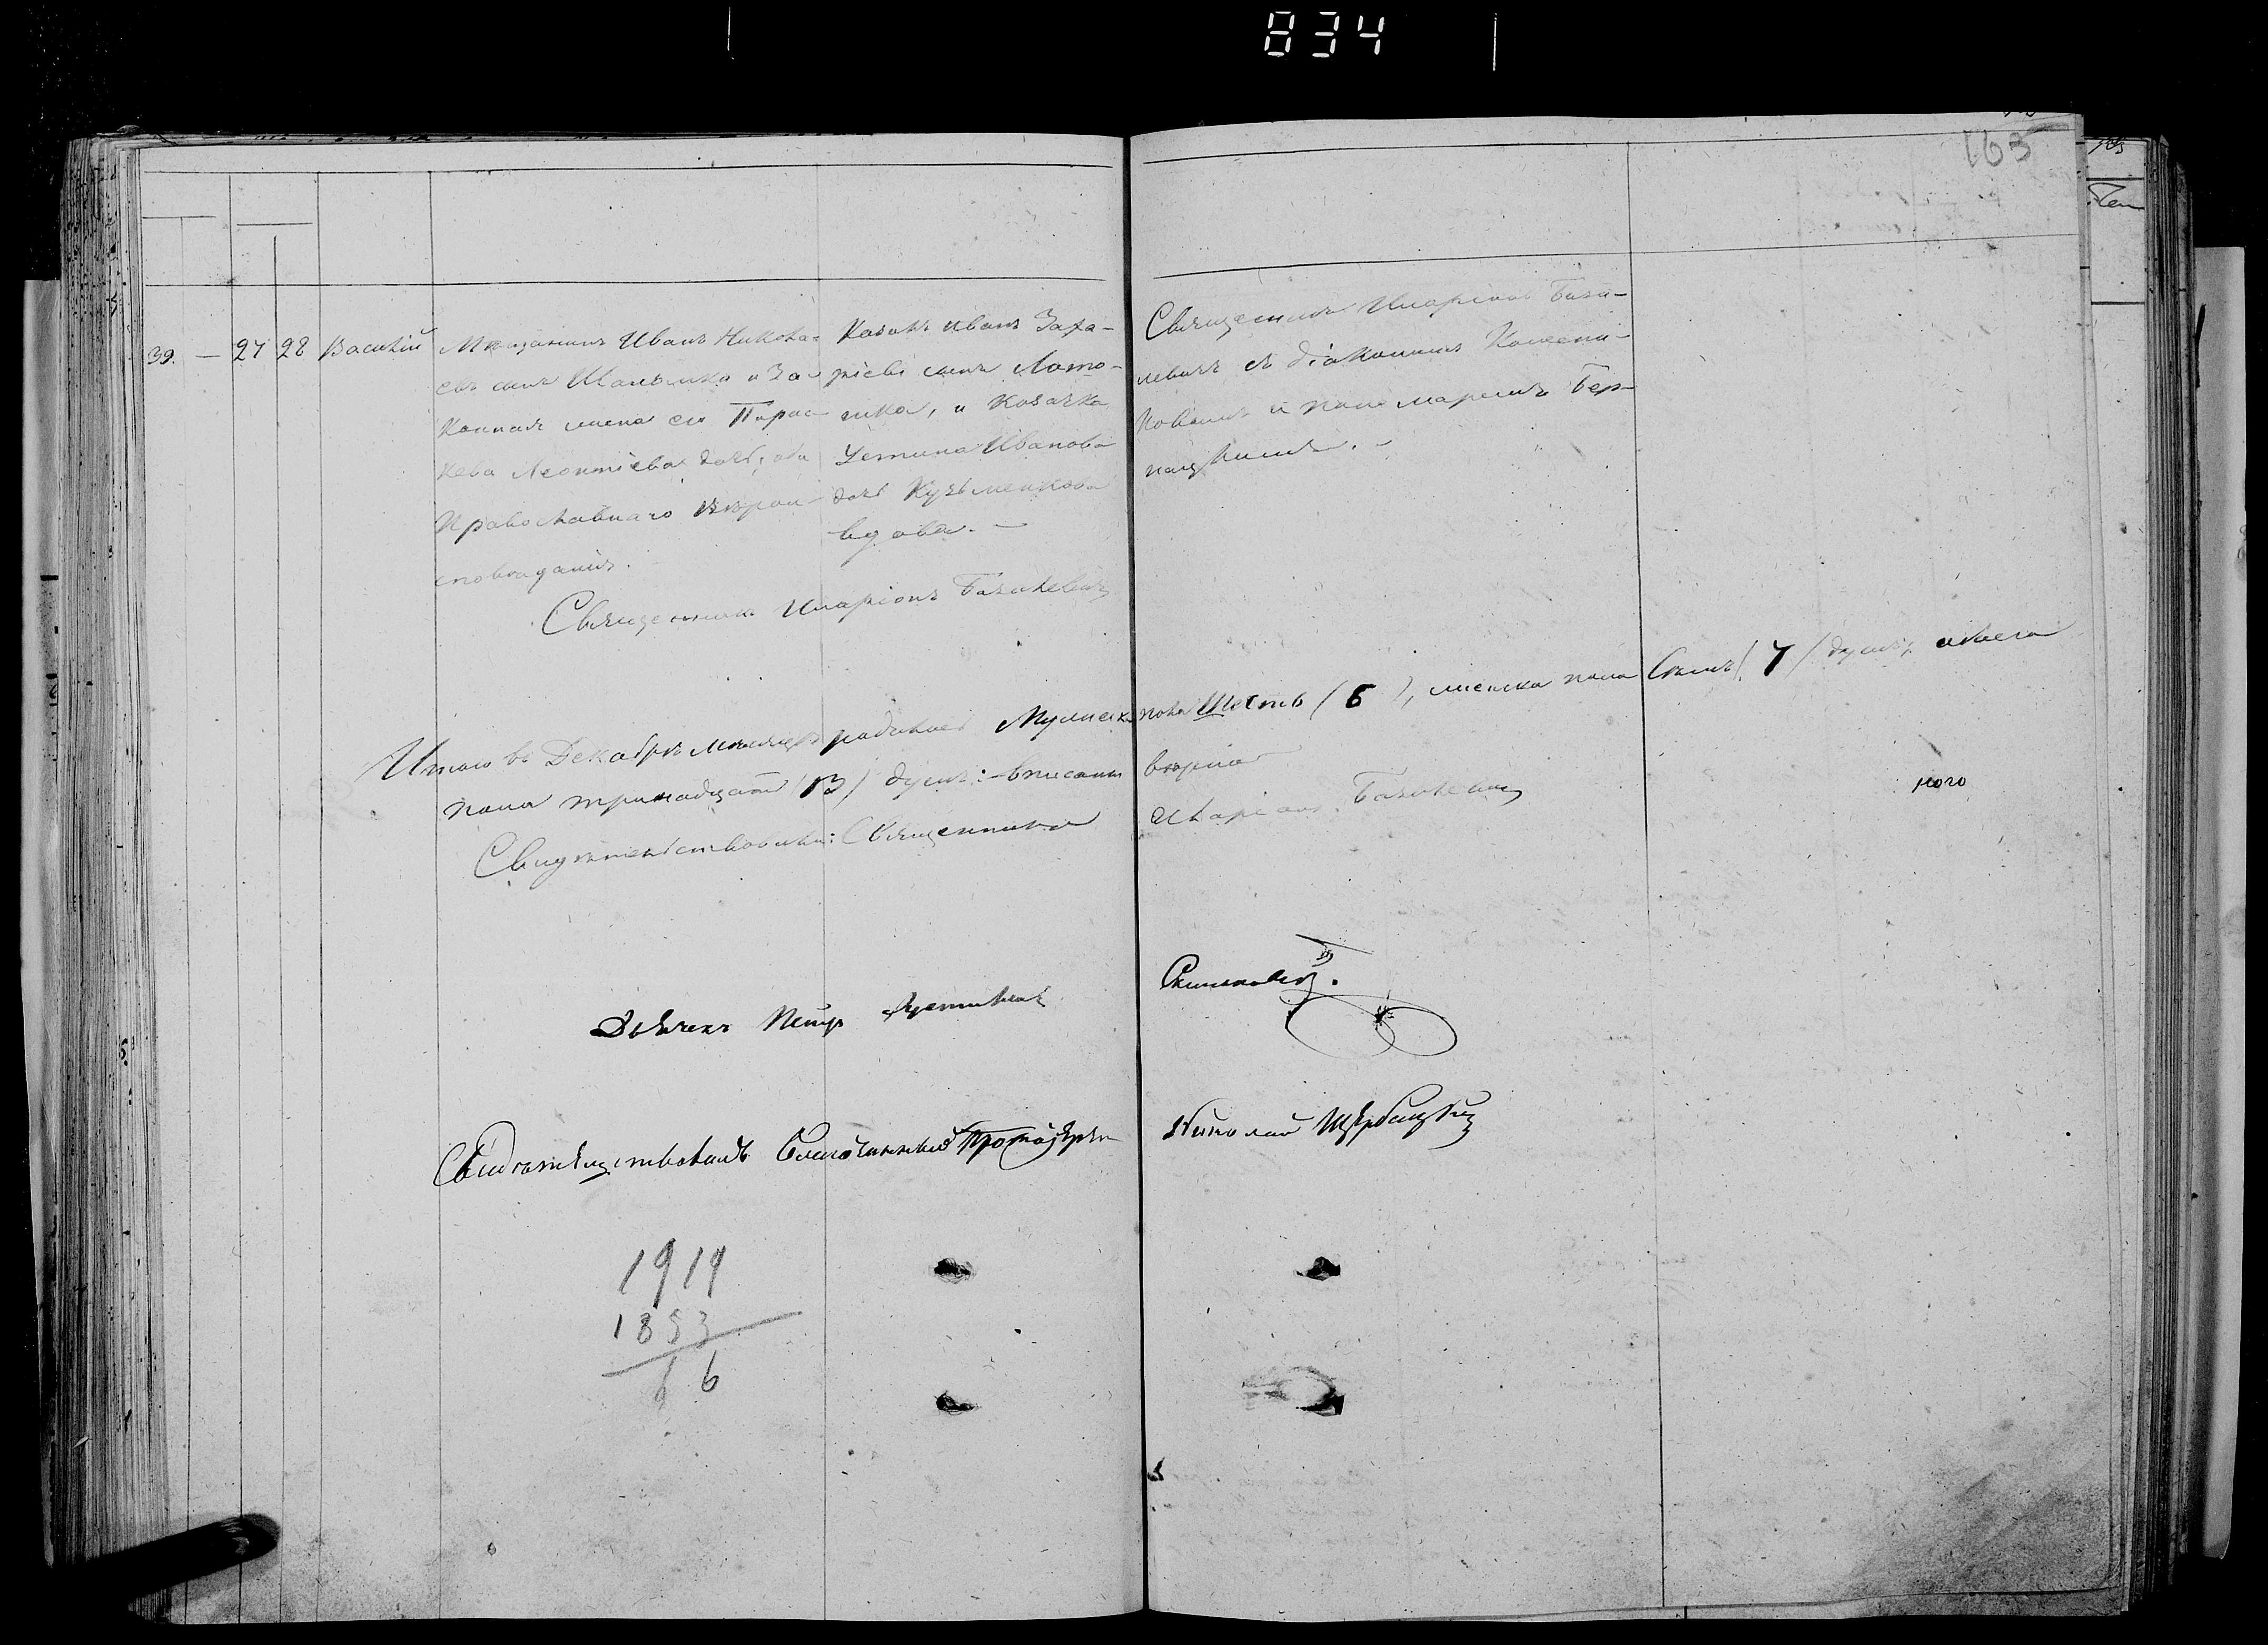 834
163
39. — 27 28 Василій
Мѣщанинъ Иванъ Никола-
евъ сынъ Шалымко и За-
конная жена его Парас-
кева Леонтіева дочь, оба
Православнаго вѣрои-
сповѣданія.
Козакъ Иванъ Заха-
ріевъ сынъ Лото-
шка, и Козачка
Устина Иванова
дочь Кузьменкова
вдова. —
Священникъ Иларіонъ Базилевичъ
Священникъ Иларіонъ Бази-
левичъ съ діакономъ
и пономаремъ
Итого въ Декабрѣ Мѣсяцѣ родилось Мужеска пола Шесть (6), женска пола Семь (7) душъ, обоего
пола тринадцать (13) душъ: — вписаны вѣрно
Свидѣтельствовали: Священникъ Иларіонъ Базилевичъ
ного
Дьячекъ Петръ
Свидѣтельствовалъ Благочинный Протоіерей Николай Щербацкій
1919
1853
66